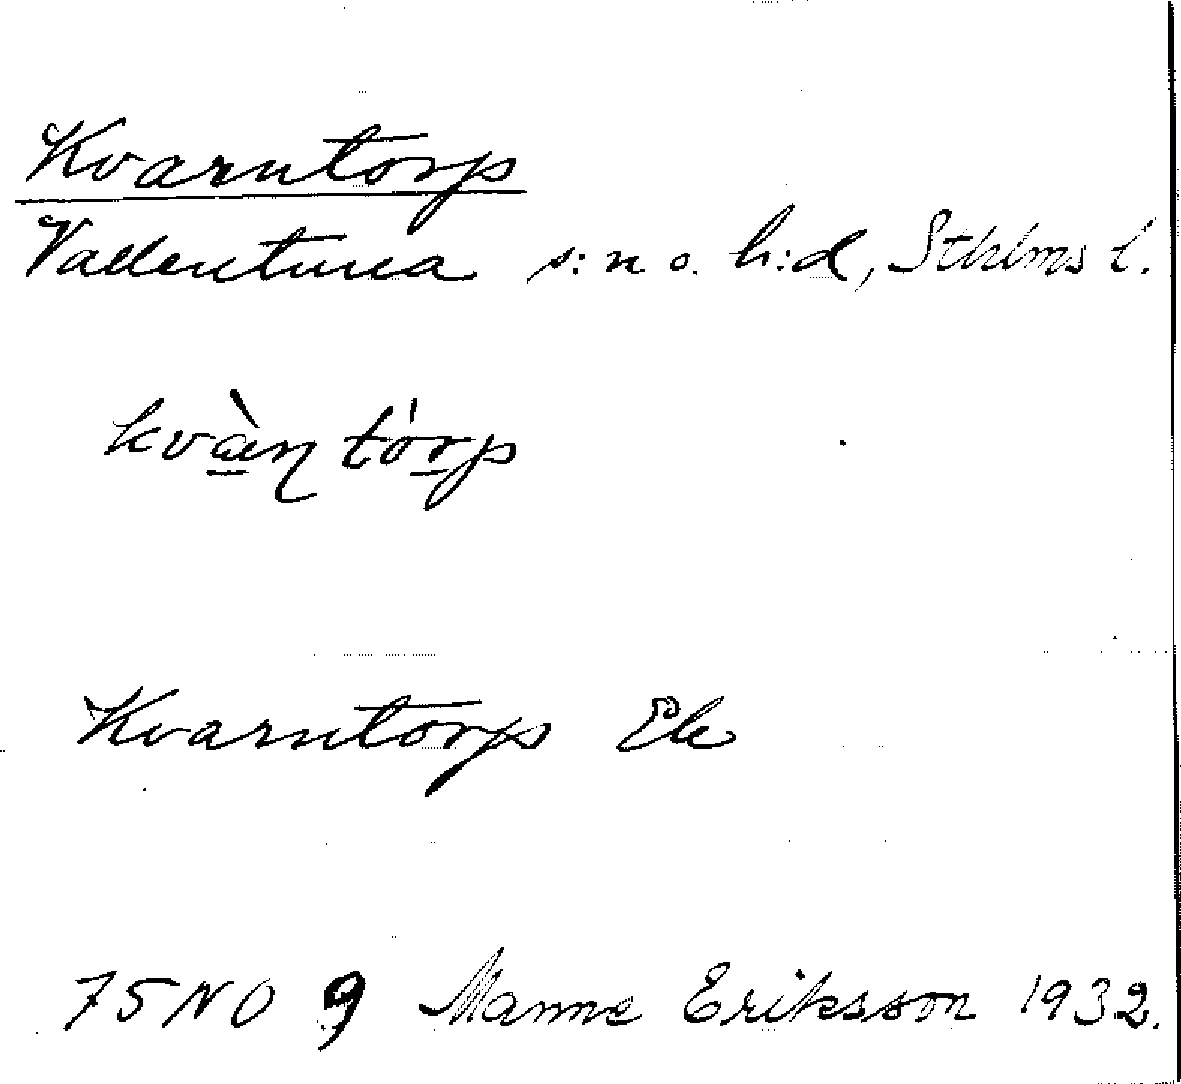 Kvarntorp
Vallentuna s:n o. h:d, Sthlms l.
kvàɳtórp
Kvarntorp Ek
75 NO 9 Manne Eriksson 1932.